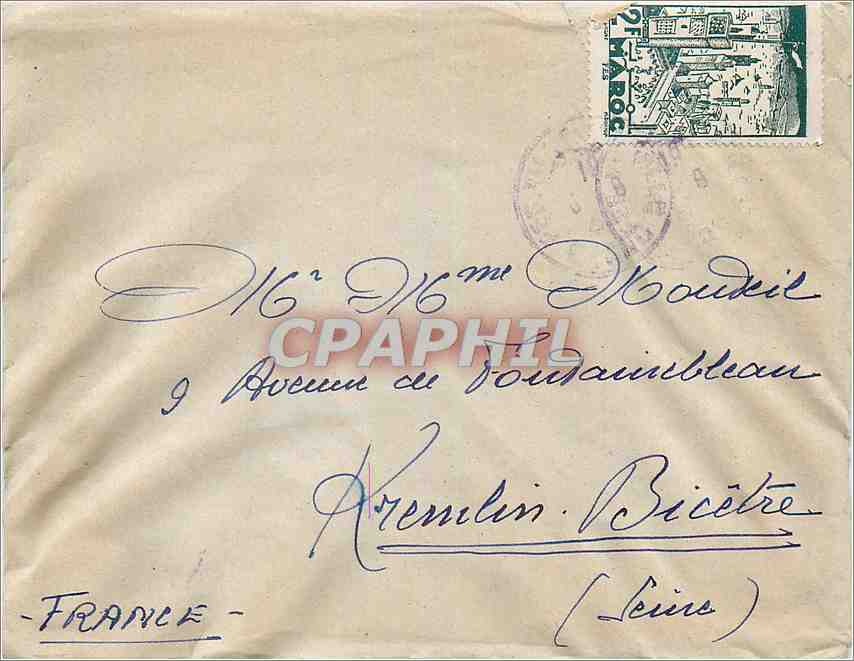 2F MAROC
FES
Mr Mme Mondeil
CPAPHIL
9 Avenue de Fontainebleau
Kremlin-Bicêtre
(Seine)
-FRANCE-